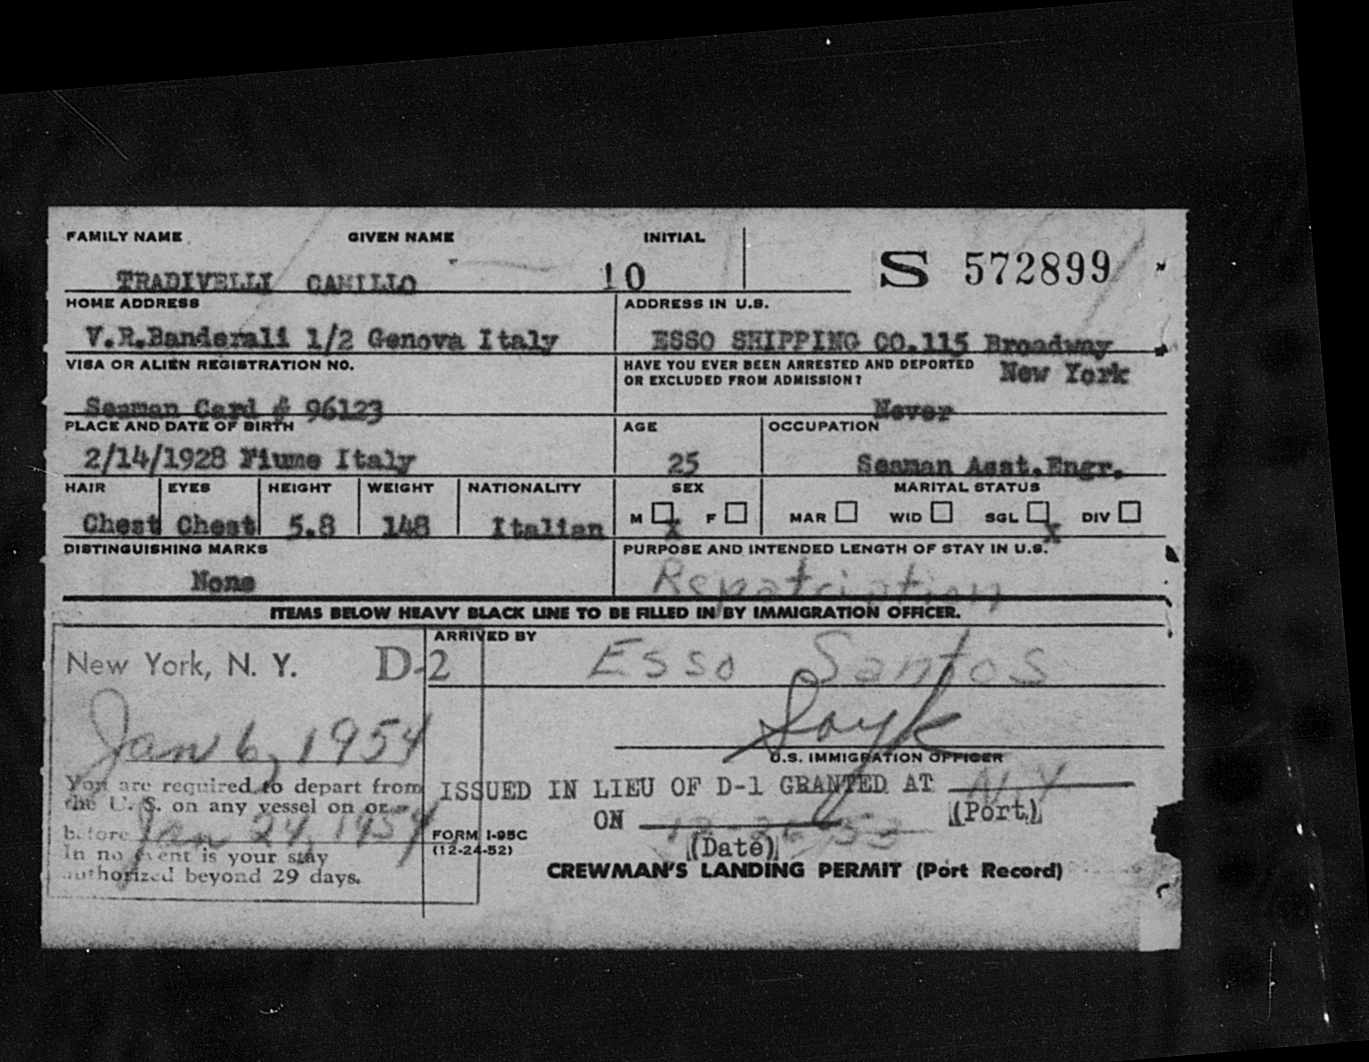 FAMILY NAME GIVEN NAME INITIAL
TRADIVELLI CAMILLO 10 S 572899
HOME ADDRESS ADDRESS IN U.S.
V.R.Banderali 1/2 Genova Italy ESSO SHIPPING CO.115 Broadway
VISA OR ALIEN REGISTRATION NO. HAVE YOU EVER BEEN ARRESTED AND DEPORTED New York
OR EXCLUDED FROM ADMISSION?
Seaman Card # 96123 Never
PLACE AND DATE OF BIRTH AGE OCCUPATION
2/14/1928 Fiume Italy 25 Seaman Asst.Engr.
HAIR EYES HEIGHT WEIGHT NATIONALITY SEX MARITAL STATUS
Chest Chest 5.8 148 Italian M X F MAR WID SGL X DIV
DISTINGUISHING MARKS PURPOSE AND INTENDED LENGTH OF STAY IN U.S.
None Repatriation
ITEMS BELOW HEAVY BLACK LINE TO BE FILLED IN BY IMMIGRATION OFFICER.
ARRIVED BY
New York, N. Y. D-2 Esso Santos
Jan 6, 1954
U.S. IMMIGRATION OFFICER
You are required to depart from ISSUED IN LIEU OF D-1 GRANTED AT N.Y
the U. S. on any vessel on or (Port)
before Jan 24, 1954 ON 12-26-53
FORM I-95C
(12-24-52) (Date)
In no event is your stay
authorized beyond 29 days. CREWMAN'S LANDING PERMIT (Port Record)